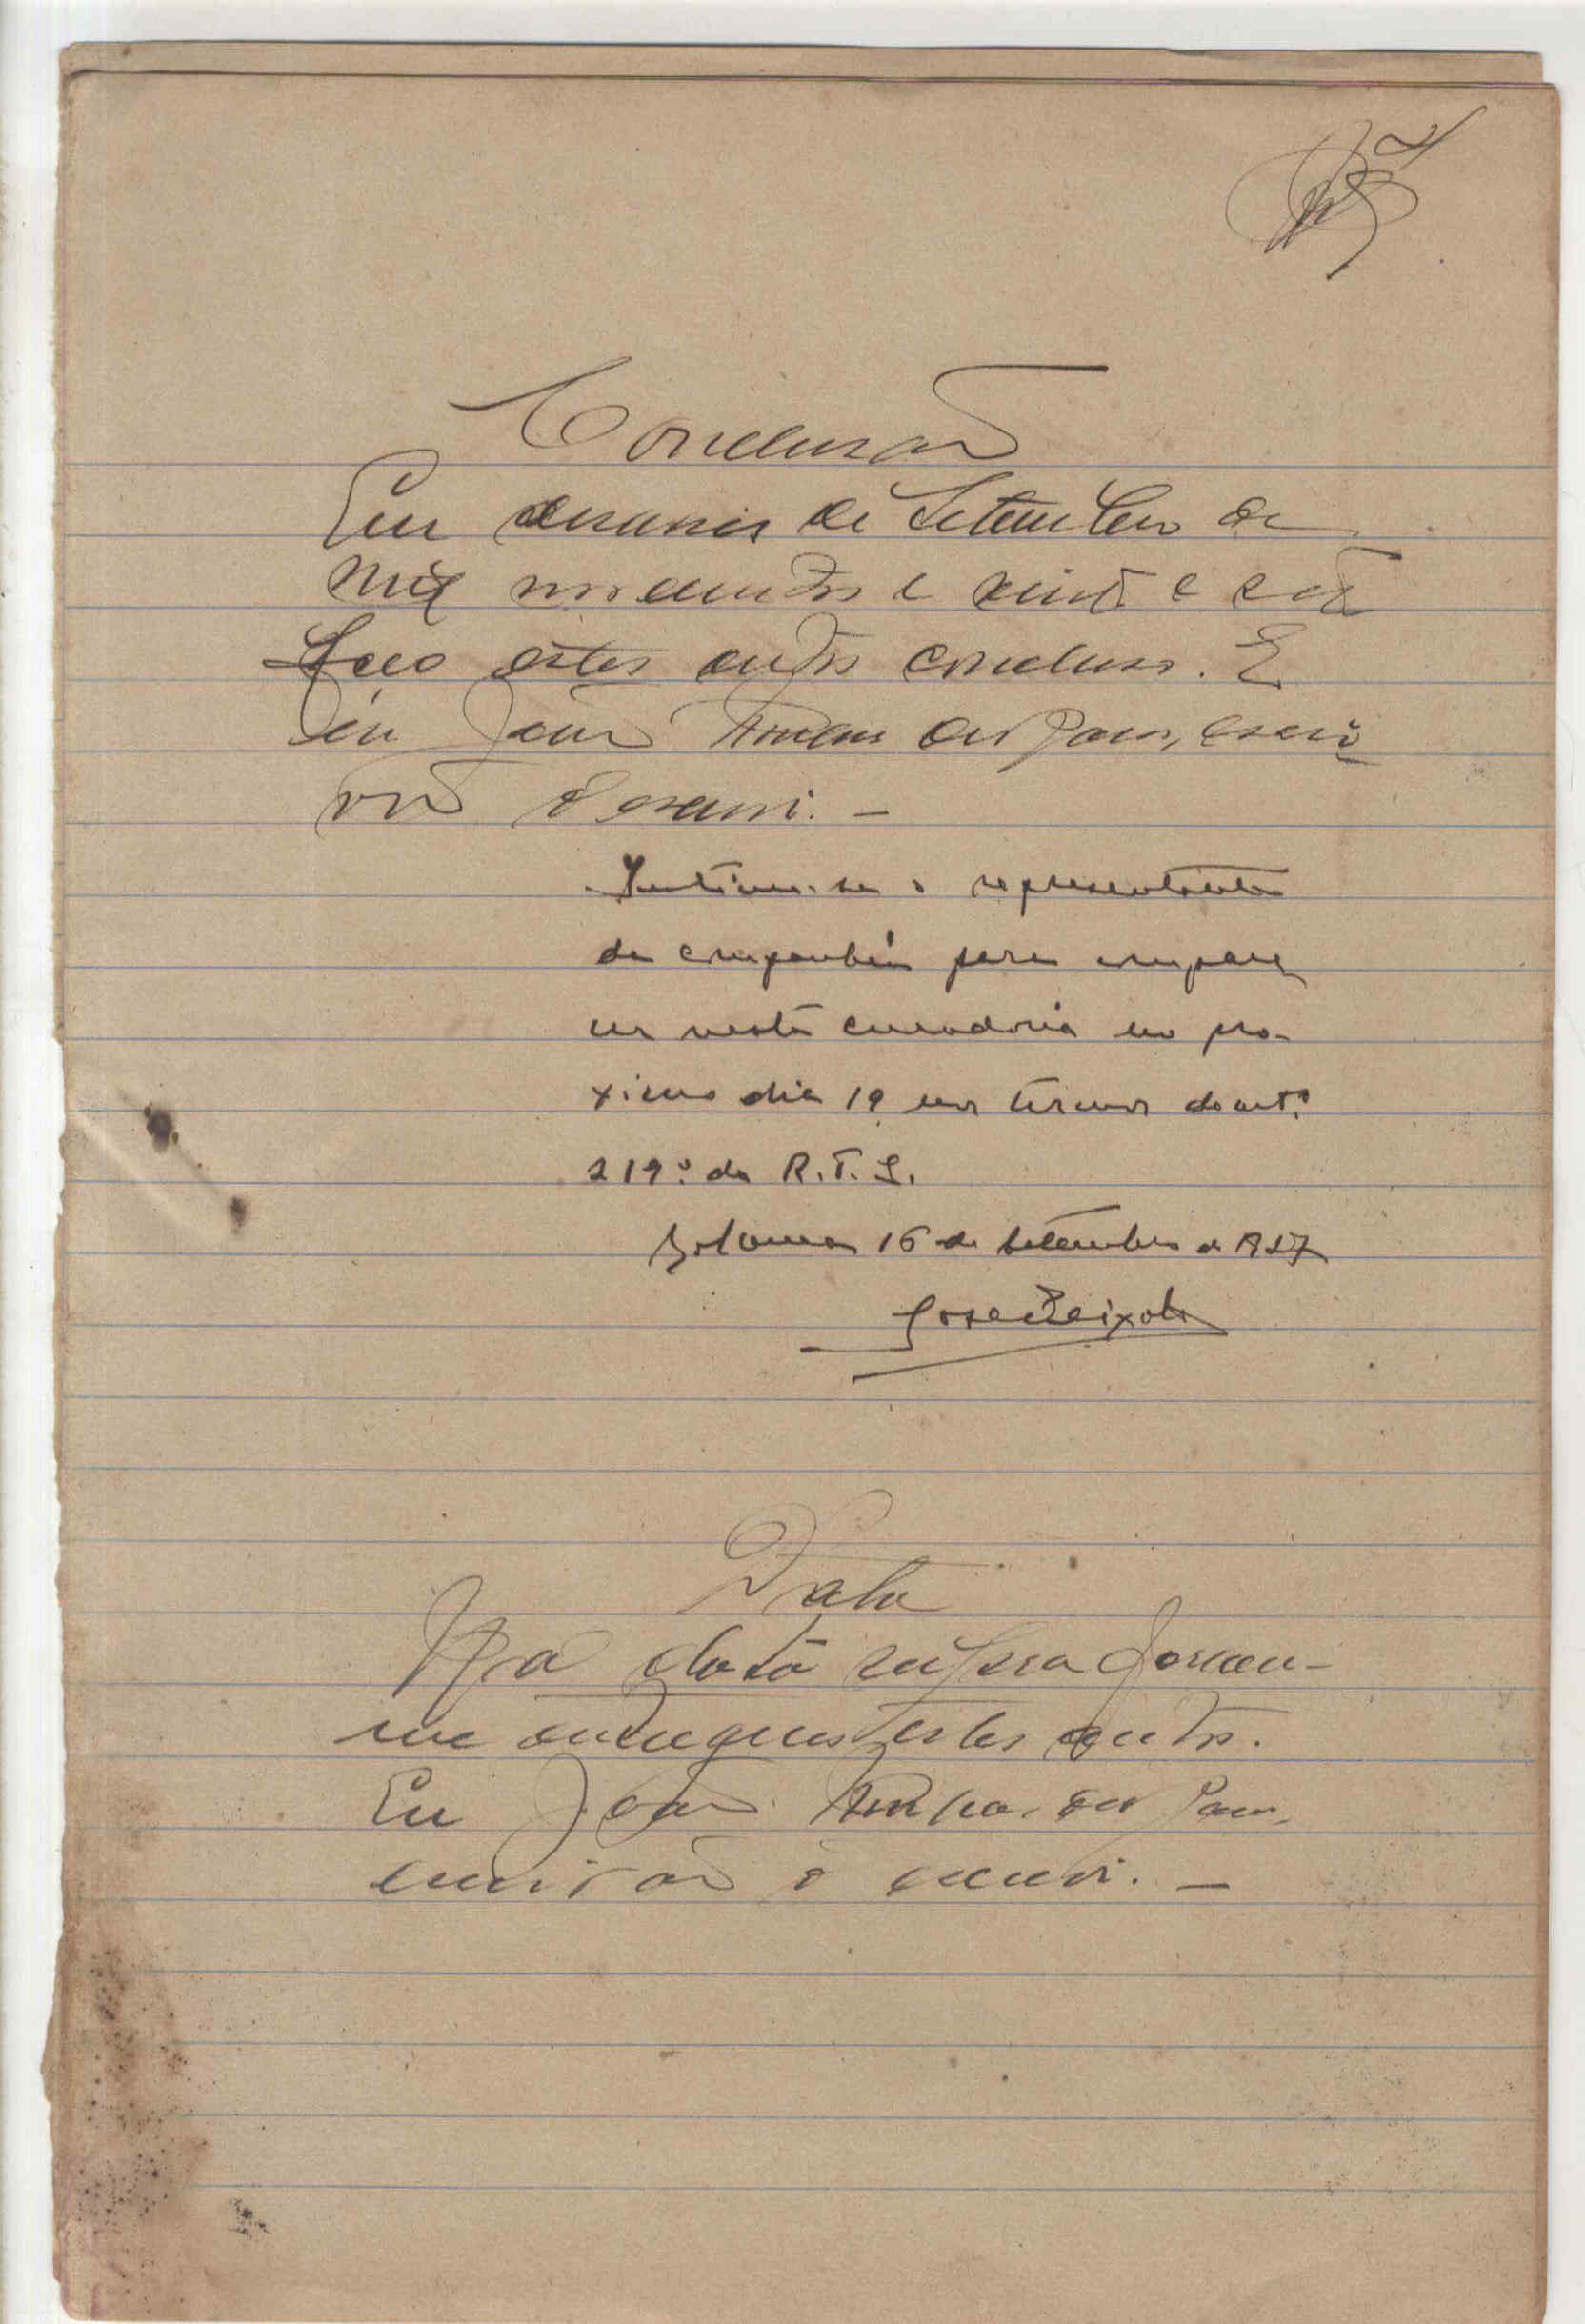 Conclusão
Em dezaseis de Setembro de
mil novecentos e vinte e sete
faço estes autos conclusos. E
eu João dos Passos, escri
vão o escrevi. —
Intime-se o representante
da companhia para compare
cer nesta curadoria no pro-
ximo dia 19 nos termos do artº
219º do R.T.I.
Bolama 16 de setembro de 1927
José Peixoto
Data
Na data supra foram-
me entregues estes autos.
Eu João dos Passos,
escrivão o escrevi. —